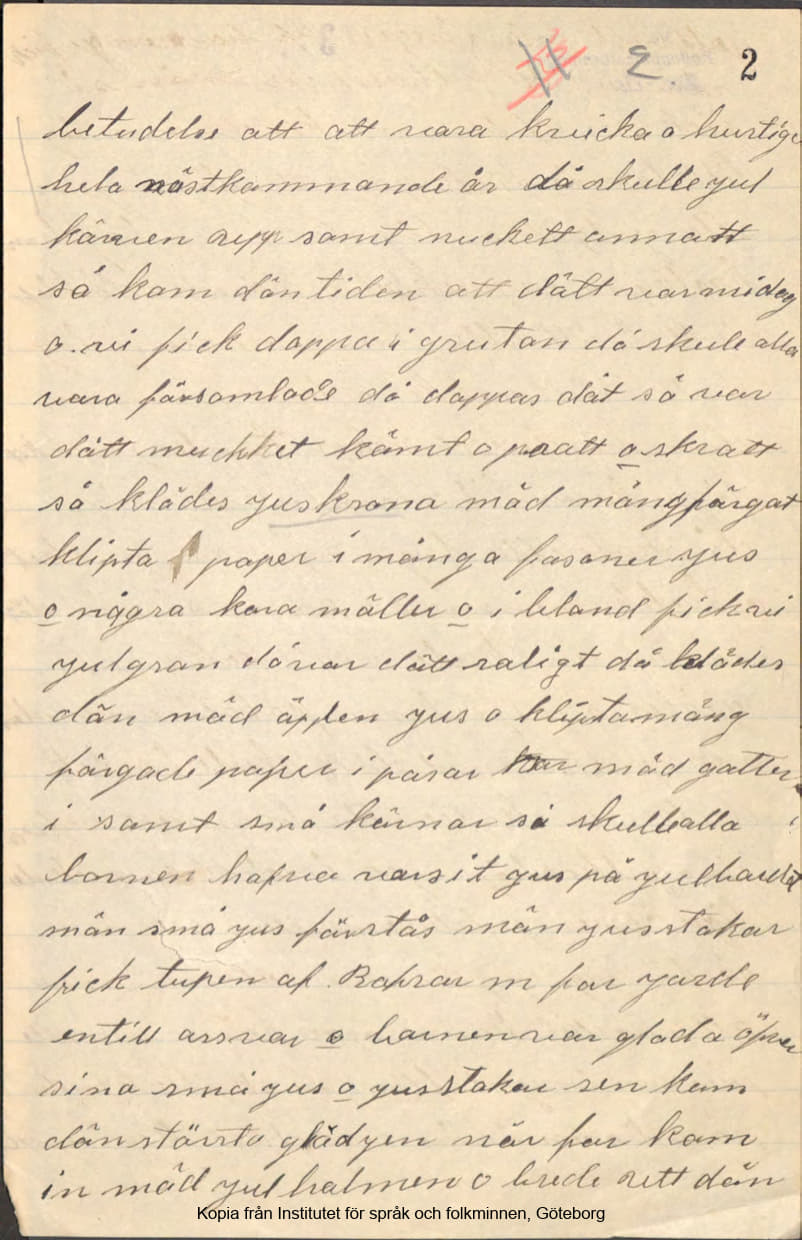 11 2. 2
betudelse att att vara kvicka o hurtiga
hela nästkammande år då skulle yul
kärven upp samt muckett annatt
så kom dän tiden att dätt var midag
o. vi fick doppa i grutan då skule alla
vara församlade då doppas dät så var
dätt muchket kämt o pratt o skratt
så klädes yuskrona mäd mångfärgat
klipta paper i många fasoner yus
o någgra kara mäller o i bland fick vi
yulgran då var dätt raligt då kläder
dän mäd äplen yus o klipta mång
färgade paper i påsar mäd gatter
i samt små kärnar så skulle alla
barnen hafva varsit yus på yulbaurdet
män små yus förstås män yusstakar
fick tupen af Rafvar m far yorde
entill ossvar o barnen var glada öfver
sina små yus o yusstakar sen kam
dän större glädyen när far kam
in mäd yul halmen o brede utt dän
Kopia från Institutet för språk och folkminnen, Göteborg